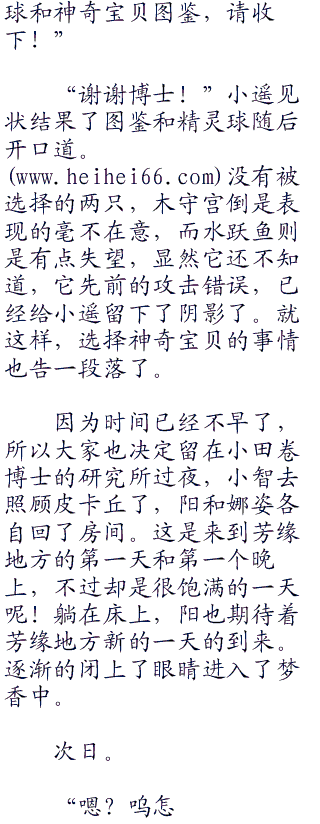 球和神奇宝贝图鉴，请收
下！”
“谢谢博士！”小遥见
状结果了图鉴和精灵球随后
开口道。
(www.heihei66.com)没有被
选择的两只，木守宫倒是表
现的毫不在意，而水跃鱼则
是有点失望，显然它还不知
道，它先前的攻击错误，已
经给小遥留下了阴影了。就
这样，选择神奇宝贝的事情
也告一段落了。
因为时间已经不早了，
所以大家也决定留在小田卷
博士的研究所过夜，小智去
照顾皮卡丘了，阳和娜姿各
自回了房间。这是来到芳缘
地方的第一天和第一个晚
上，不过却是很饱满的一天
呢！躺在床上，阳也期待着
芳缘地方新的一天的到来。
逐渐的闭上了眼睛进入了梦
香中。
次日。
“嗯？呜怎